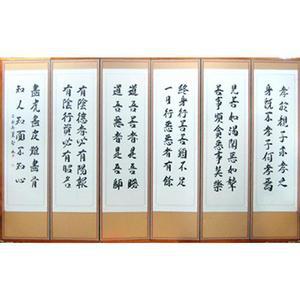 孝於親子亦孝之
身旣不孝子何孝焉
見善如渴聞惡如聾
善事須貪惡事莫樂
終身行善善猶不足
一日行惡惡自有餘
道吾善者是吾賊
道吾惡者是吾師
有陰德者必有陽報
有陰行者必有昭名
畵虎畵皮難畵骨
知人知面不知心